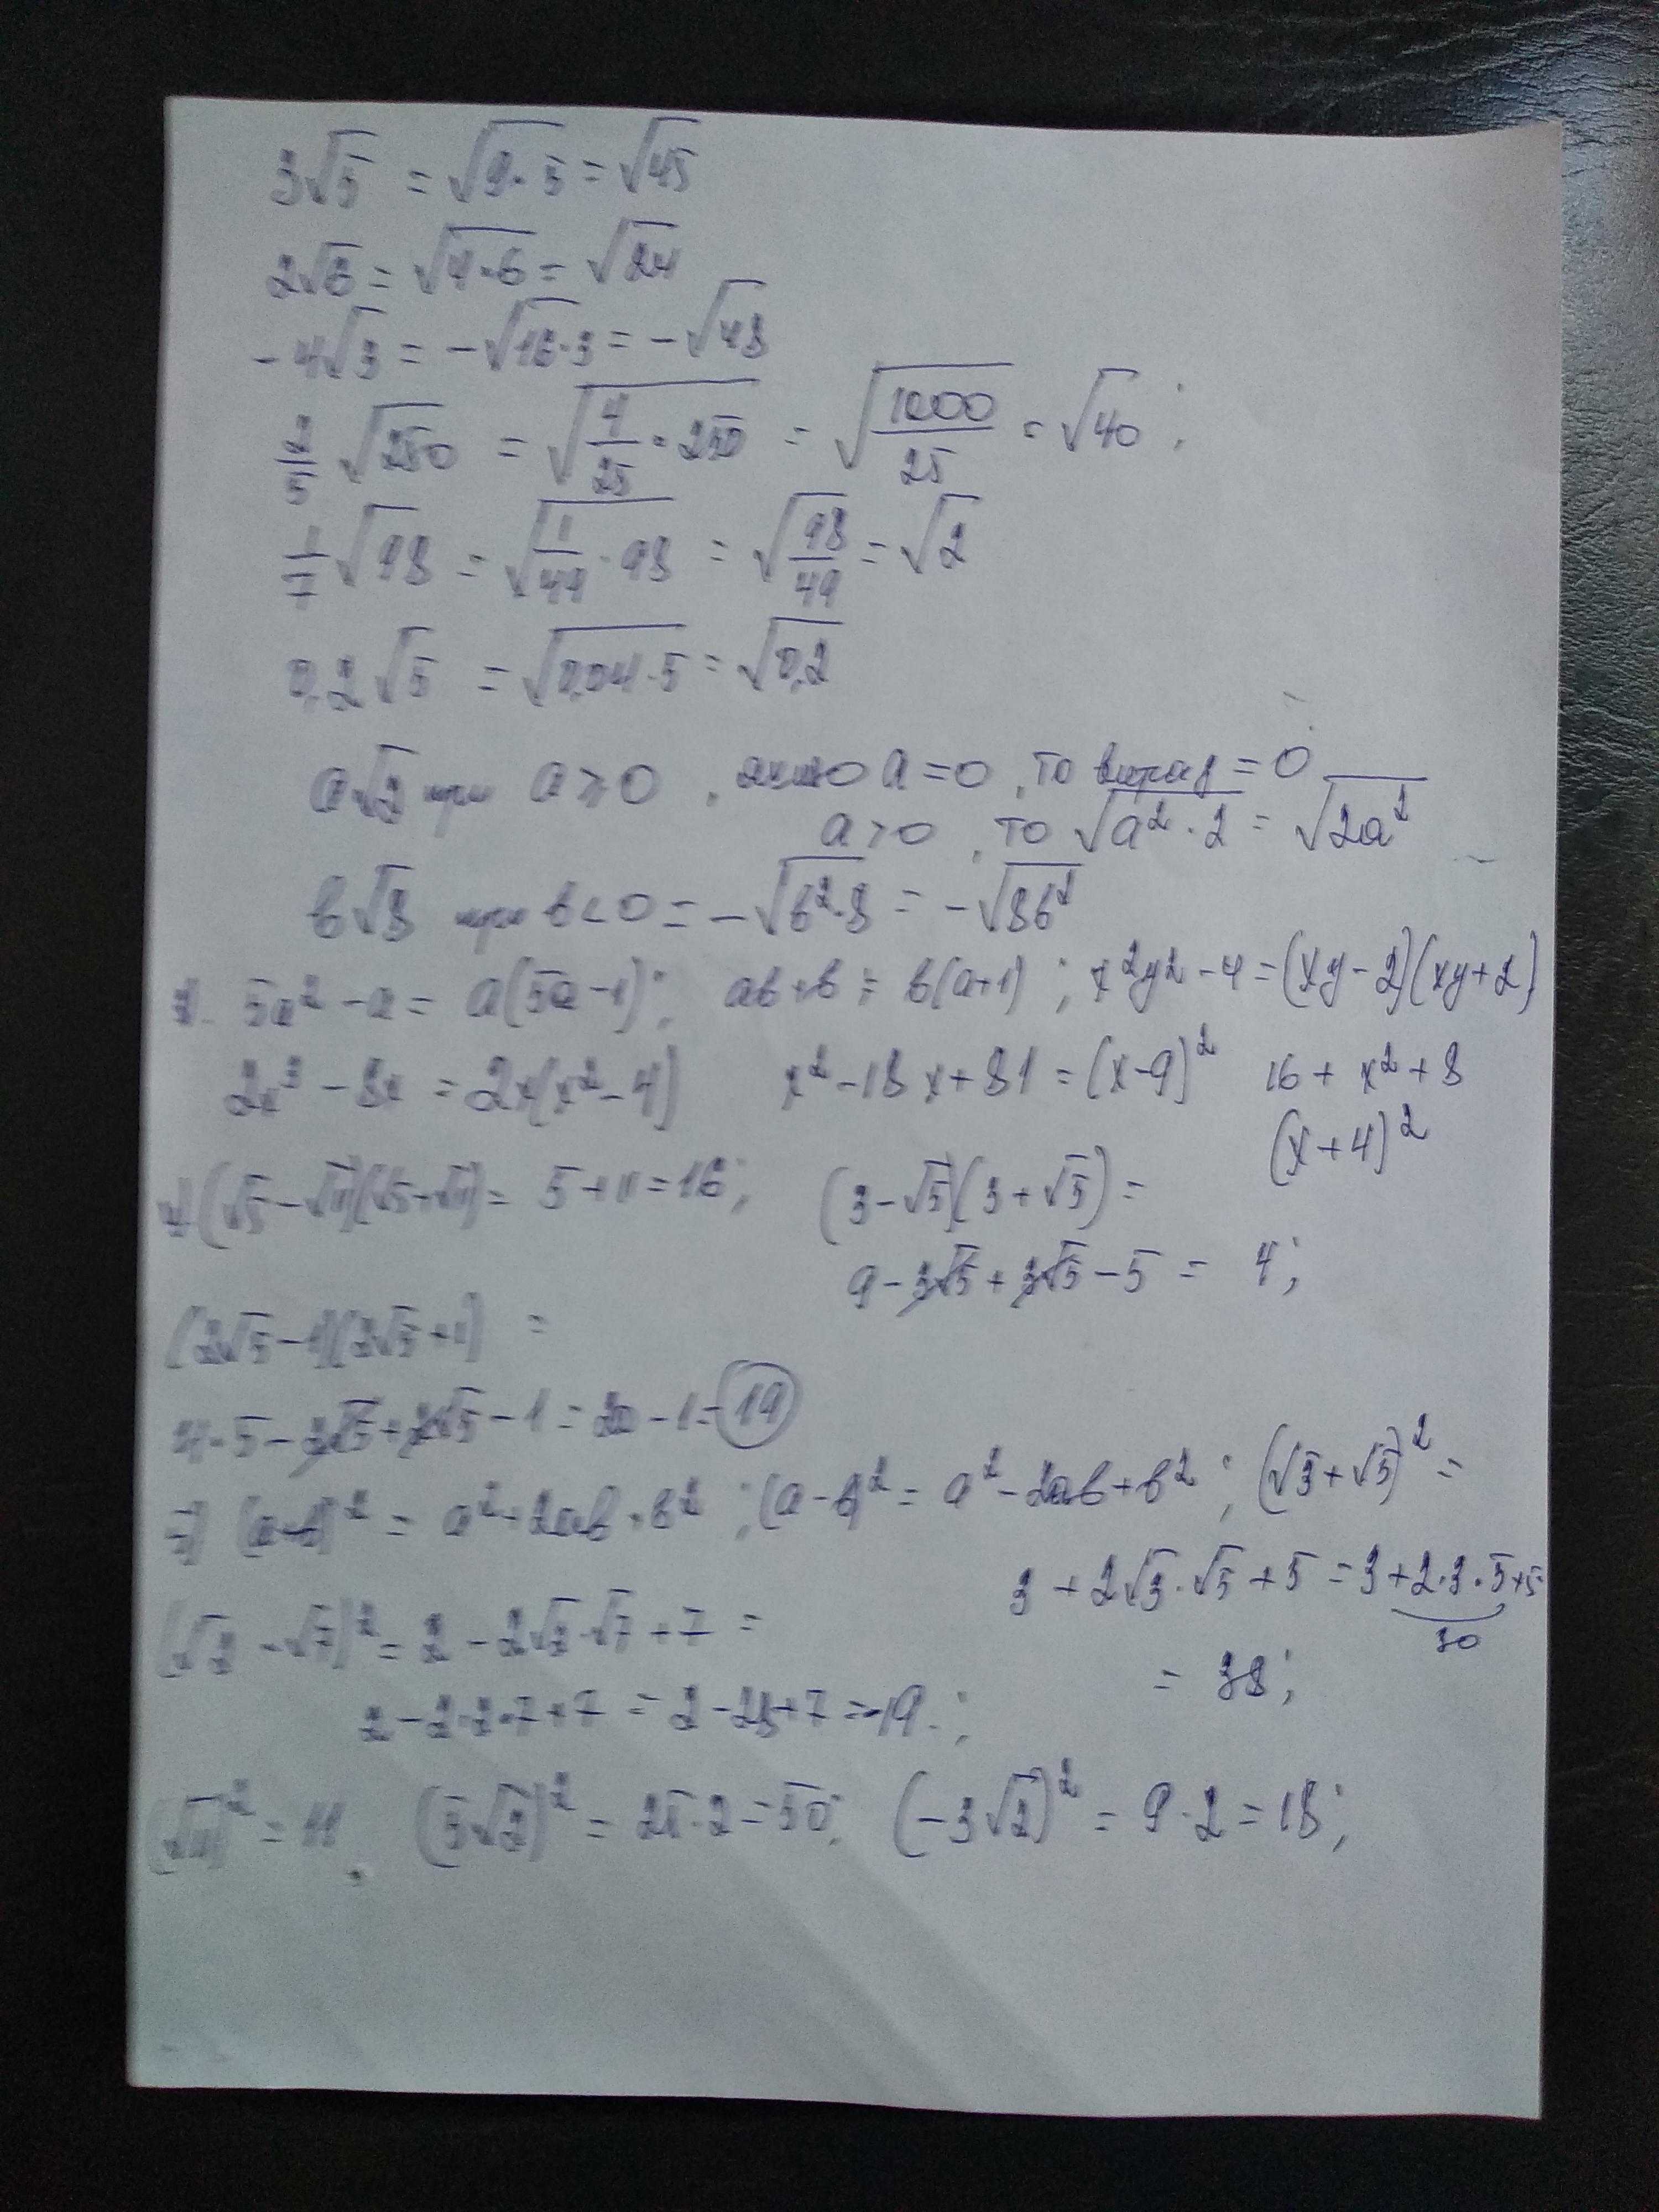 3√5 = √9·5 = √45
2√6 = √4·6 = √24
-4√3 = -√16·3 = -√48
2/5 √250 = √4/25 · 250 = √1000/25 = √40 ;
1/7 √98 = √1/49 · 98 = √98/49 = √2
0,2√5 = √0,04·5 = √0,2
a√2 при a ≥ 0 , якщо a = 0 , то вираз = 0
a > 0 , то √a² · 2 = √2a²
b√8 при b < 0 = -√b²·8 = -√8b²
5a² - a = a(5a - 1) ; ab + b = b(a+1) ; x²y² - 4 = (xy - 2)(xy + 2)
2x³ - 8x = 2x(x² - 4) x² - 18x + 81 = (x - 9)² 16 + x² + 8
(x + 4)²
(√5 - √11)(√5 + √11) = 5 + 11 = 16 ; (3 - √5)(3 + √5) =
9 - 3√5 + 3√5 - 5 = 4 ;
(2√5 - 1)(2√5 + 1) =
4·5 - 2√5 + 2√5 - 1 = 20 - 1 = 19
(a+b)² = a² + 2ab + b² ; (a - b)² = a² - 2ab + b² ; (√3 + √5)² =
3 + 2√3 · √5 + 5 = 3 + 2·3·5 + 5 =
30
(√2 - √7)² = 2 - 2√2 · √7 + 7 =
= 38 ;
2 - 2·2·7 + 7 = 2 - 28 + 7 = -19 ;
(√11)² = 11 , (5√2)² = 25·2 = 50 ; (-3√2)² = 9·2 = 18 ;